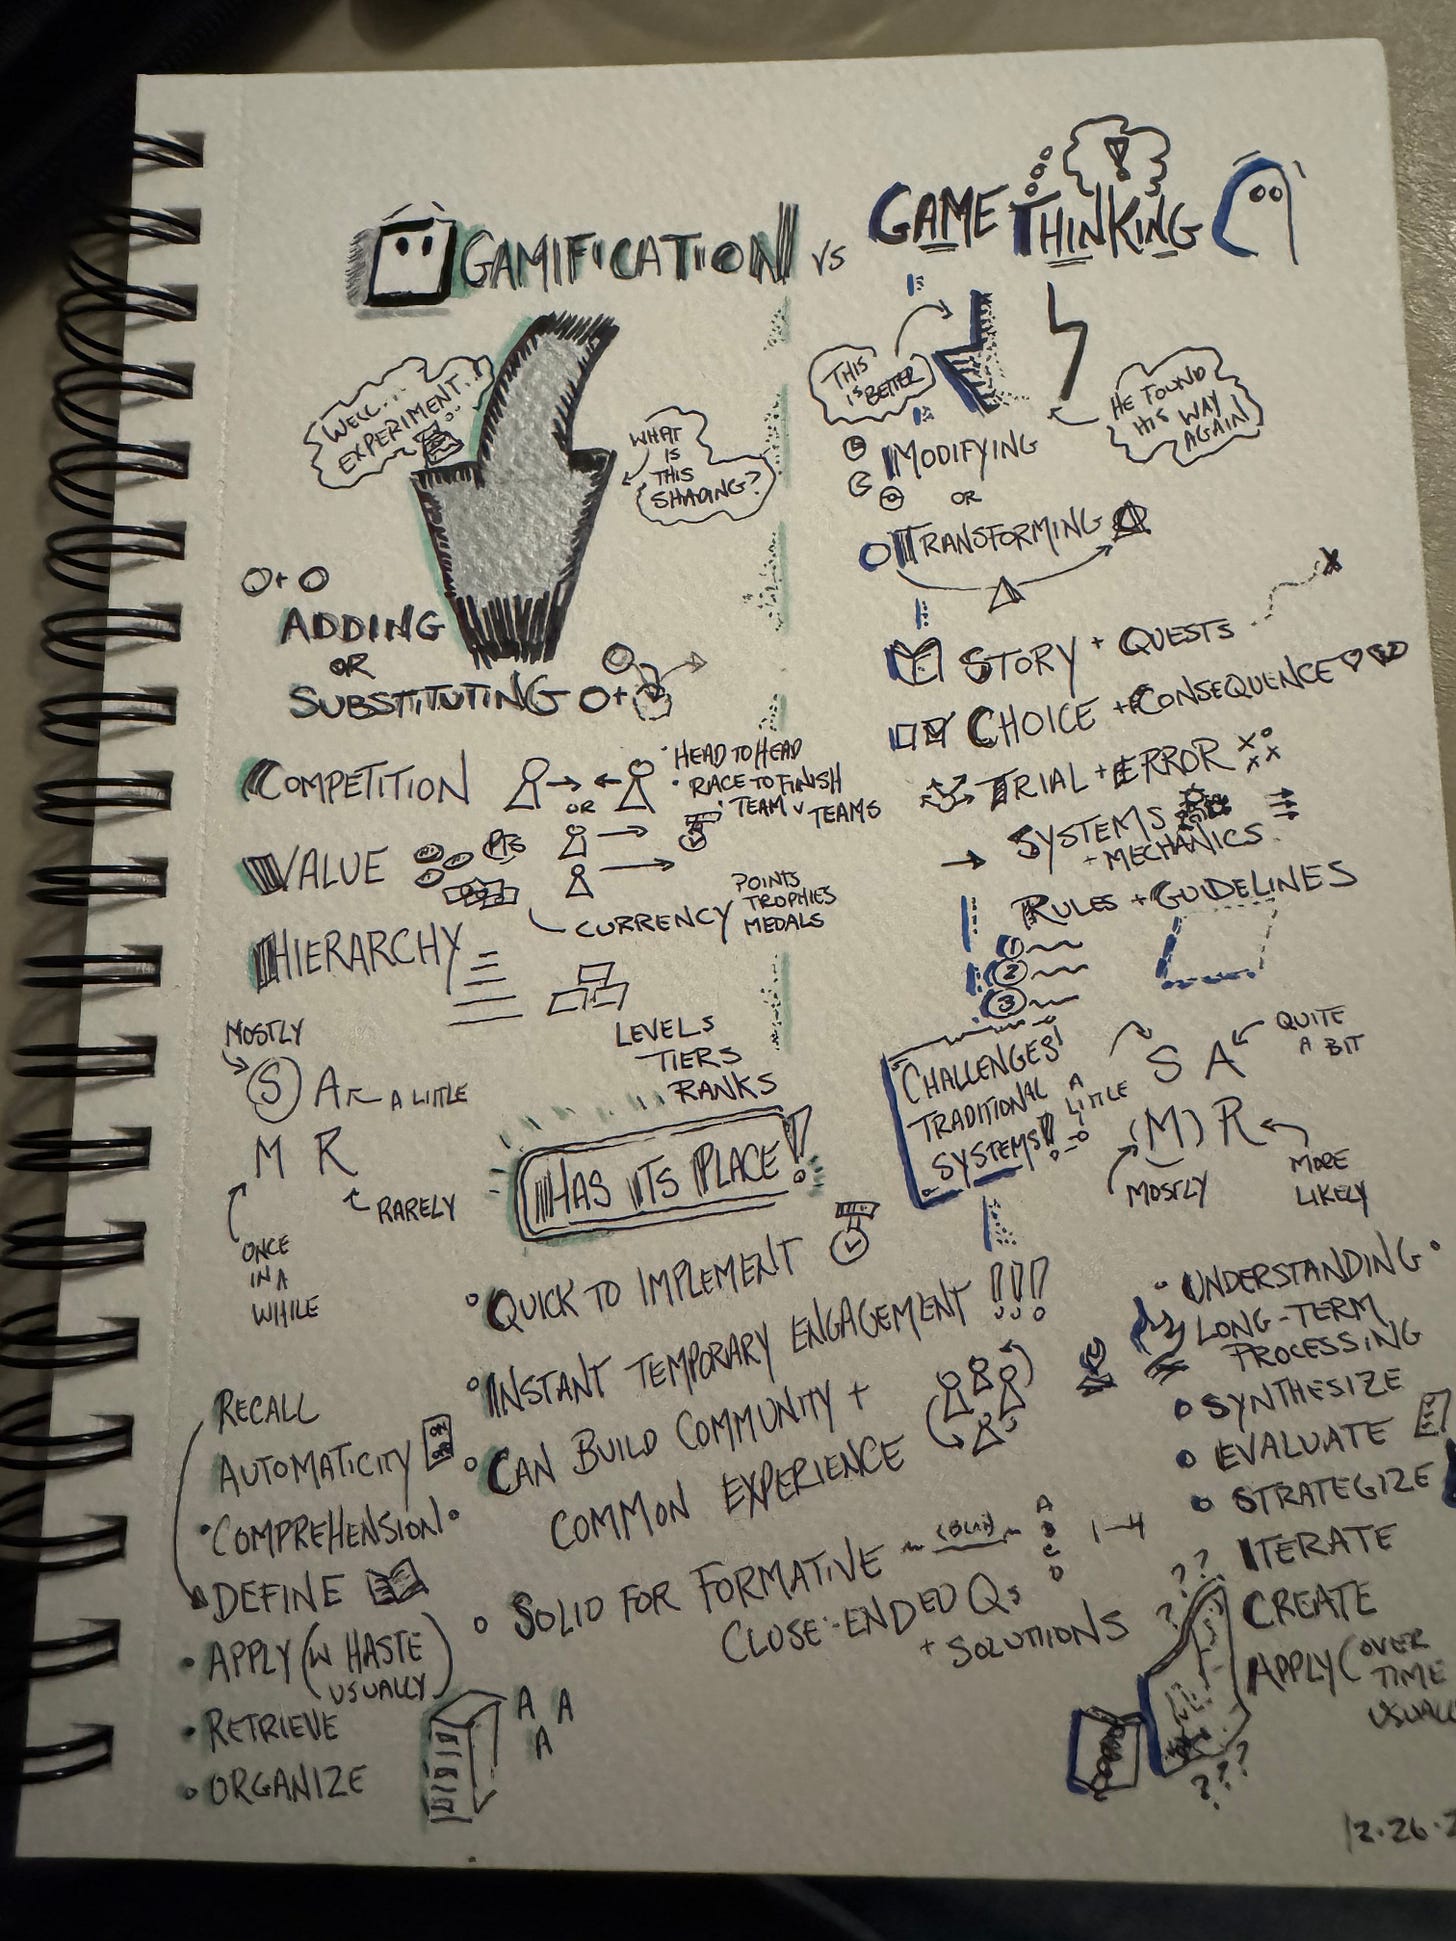 GAMIFICATION vs GAME THINKING
WELL...
EXPERIMENT...
WHAT
IS
THIS
SHADING?
ADDING
OR
SUBSTITUTING
COMPETITION
OR
• HEAD TO HEAD
• RACE TO FINISH
• TEAM v TEAMS
VALUE
PTS
CURRENCY
POINTS
TROPHIES
MEDALS
HIERARCHY
LEVELS
TIERS
RANKS
MOSTLY
S A A LITTLE
M R
RARELY
ONCE
IN A
WHILE
HAS ITS PLACE!
• QUICK TO IMPLEMENT
• INSTANT TEMPORARY ENGAGEMENT !!!
• CAN BUILD COMMUNITY +
COMMON EXPERIENCE
• SOLID FOR FORMATIVE
A
B
C
D
1-4
CLOSE-ENDED Qs
+ SOLUTIONS
RECALL
AUTOMATICITY
• COMPREHENSION •
DEFINE
• APPLY (W HASTE
USUALLY)
• RETRIEVE
• ORGANIZE
A A
A
THIS
IS BETTER
HE FOUND
HIS WAY
AGAIN!
MODIFYING
OR
TRANSFORMING
STORY + QUESTS
CHOICE + CONSEQUENCE
TRIAL + ERROR
SYSTEMS
+ MECHANICS
RULES + GUIDELINES
1
2
3
CHALLENGES!
TRADITIONAL
SYSTEMS!!
A
LITTLE
S A
QUITE
A BIT
(M) R
MOSTLY
MORE
LIKELY
• UNDERSTANDING •
LONG-TERM
PROCESSING
• SYNTHESIZE
• EVALUATE
• STRATEGIZE
ITERATE
CREATE
APPLY (OVER
TIME
? ?
? ? ?